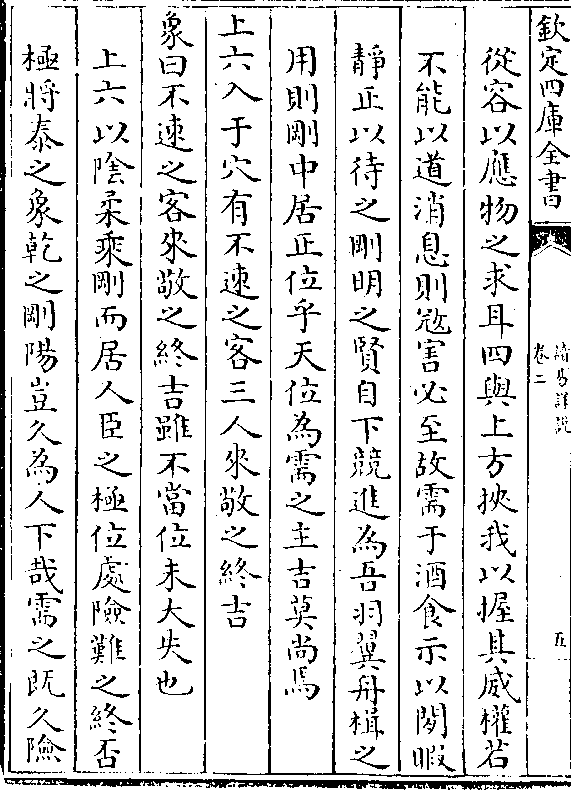 欽定四庫全書
讀易詳說
卷二
五
從容以應物之求耳四與上方挾我以握其威權若
不能以道消息則寇害必至故需于酒食示以閒暇
靜正以待之剛明之賢自下競進為吾羽翼舟楫之
用則剛中居正位乎天位為需之主吉莫尚焉
上六入于穴有不速之客三人來敬之終吉
象曰不速之客來敬之終吉雖不當位未大失也
上六以陰柔乘剛而居人臣之極位處險難之終否
極將泰之象乾之剛陽豈久為人下哉需之既久險